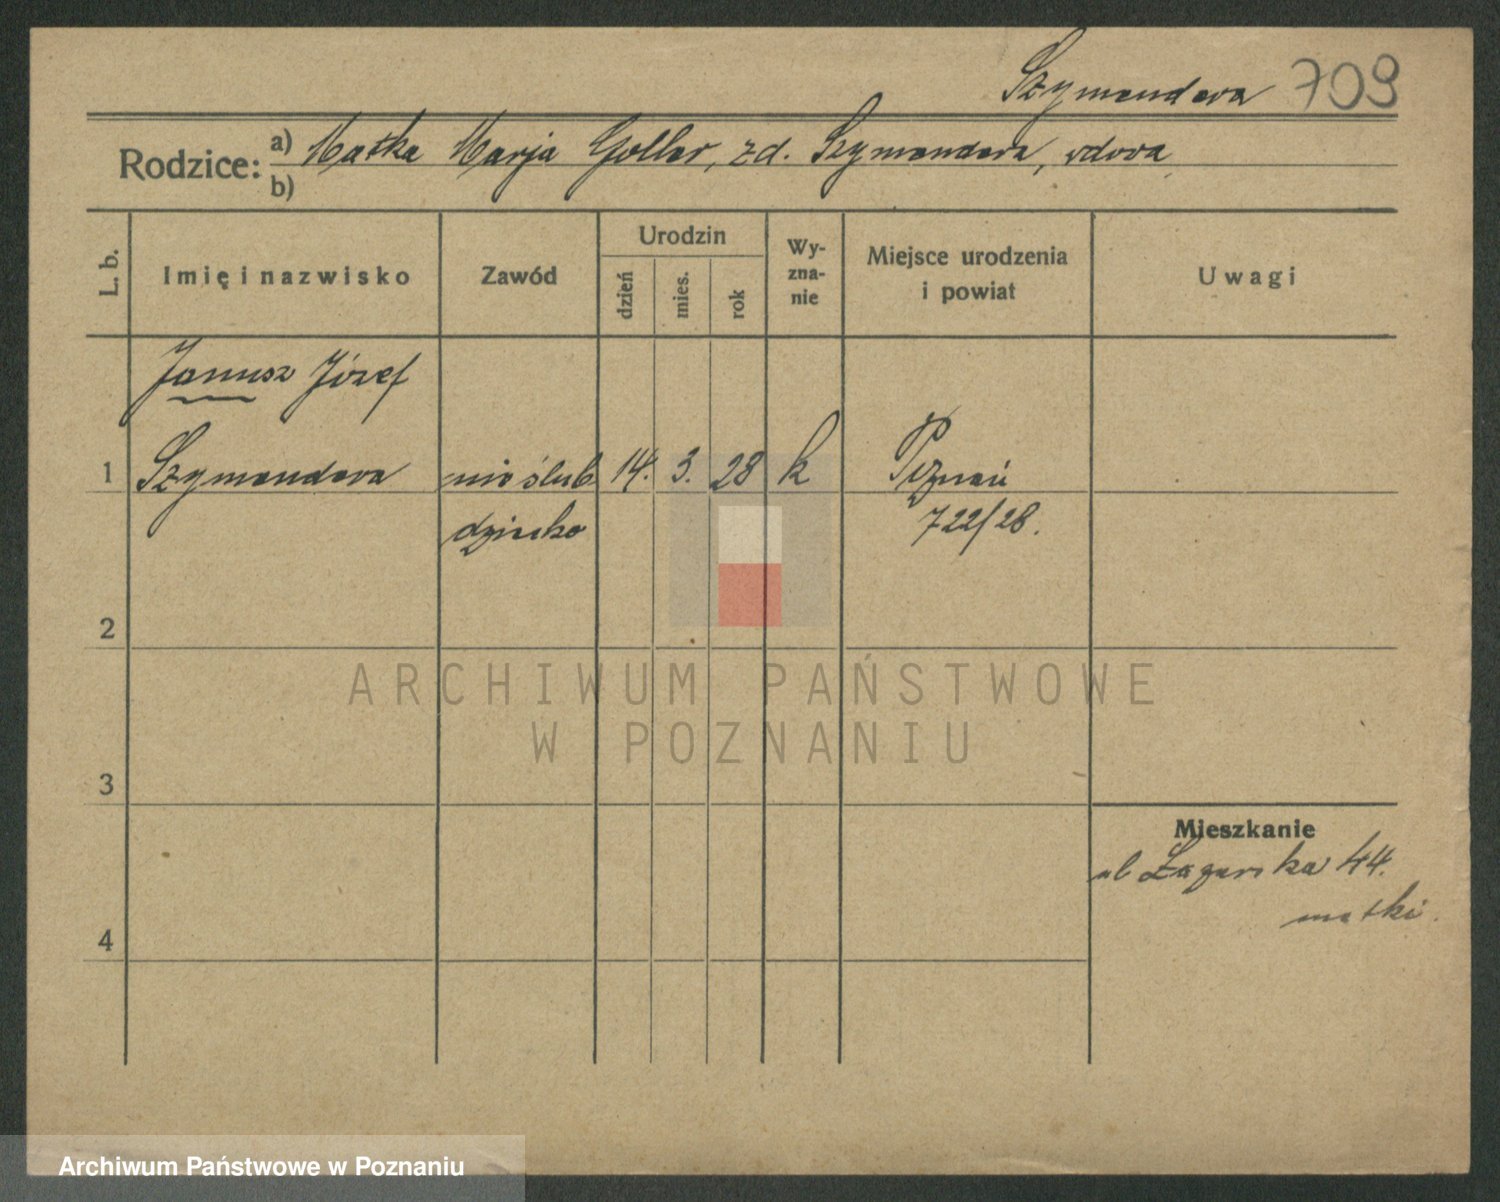 Szymendera 709
Rodzice: a) Matka Marja Goller, zd. Szymendera, wdova
b)
L. b.
Imię i nazwisko
Zawód
Urodzin
dzień
mies.
rok
Wy-
zna-
nie
Miejsce urodzenia
i powiat
Uwagi
Janusz Józef
1 Szymendera nieślub 14. 3. 28 k Poznań
dziecko 722/28.
2
3
4
Mieszkanie
ul 44.
matki.
ARCHIWUM PAŃSTWOWE
W POZNANIU
Archiwum Państwowe w Poznaniu